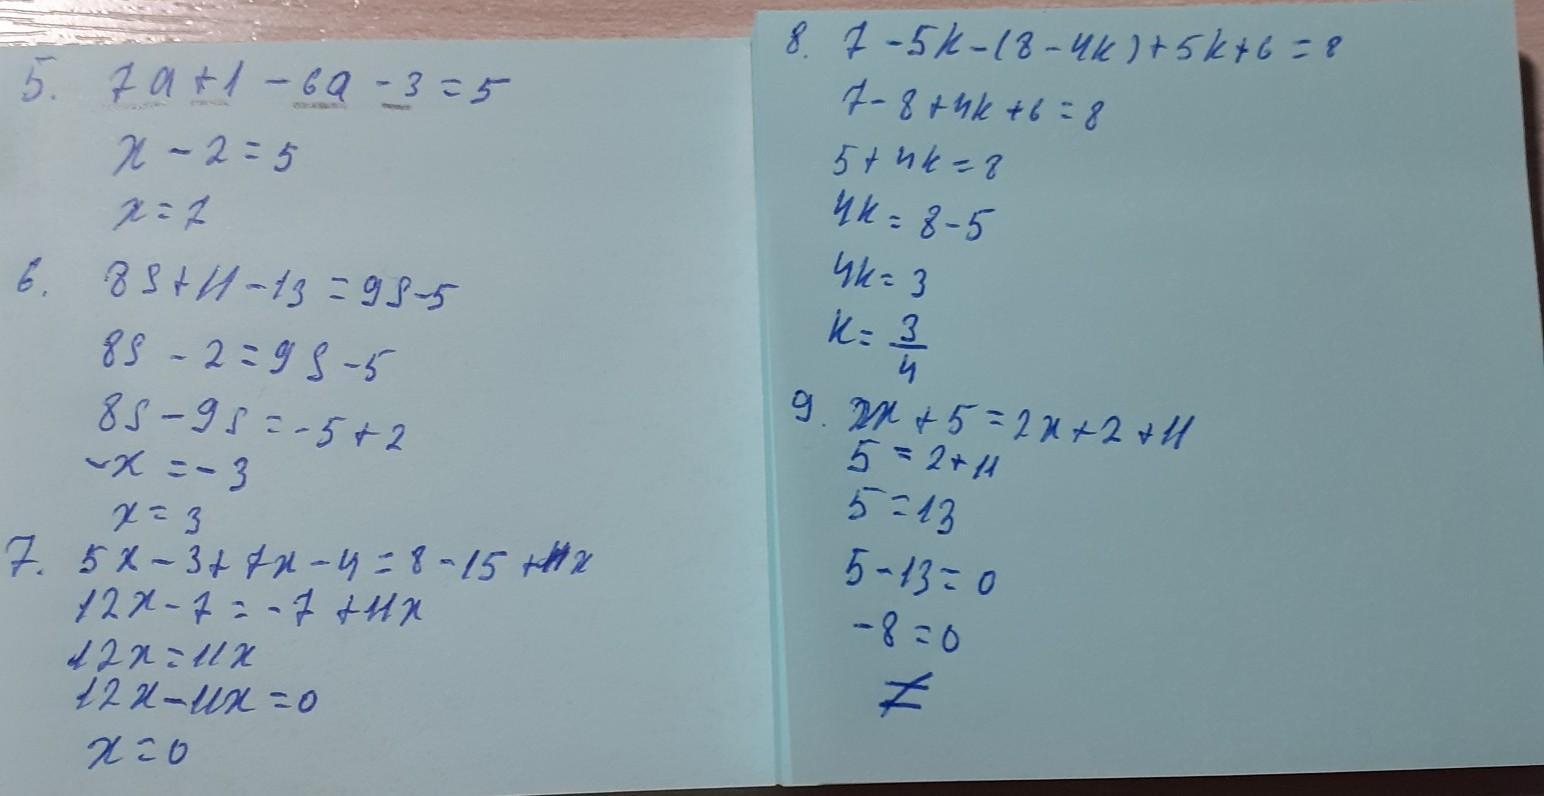 5. 7a+1-6a-3=5
x-2=5
x=7
6. 8S+11-13=9S-5
8S-2=9S-5
8S-9S=-5+2
-x=-3
x=3
7. 5x-3+7x-4=8-15+11x
12x-7=-7+11x
12x=11x
12x-11x=0
x=0
8. 7-5k-(8-4k)+5k+6=8
7-8+4k+6=8
5+4k=8
4k=8-5
4k=3
k=3/4
9. 2x+5=2x+2+11
5=2+11
5=13
5-13=0
-8=0
≠